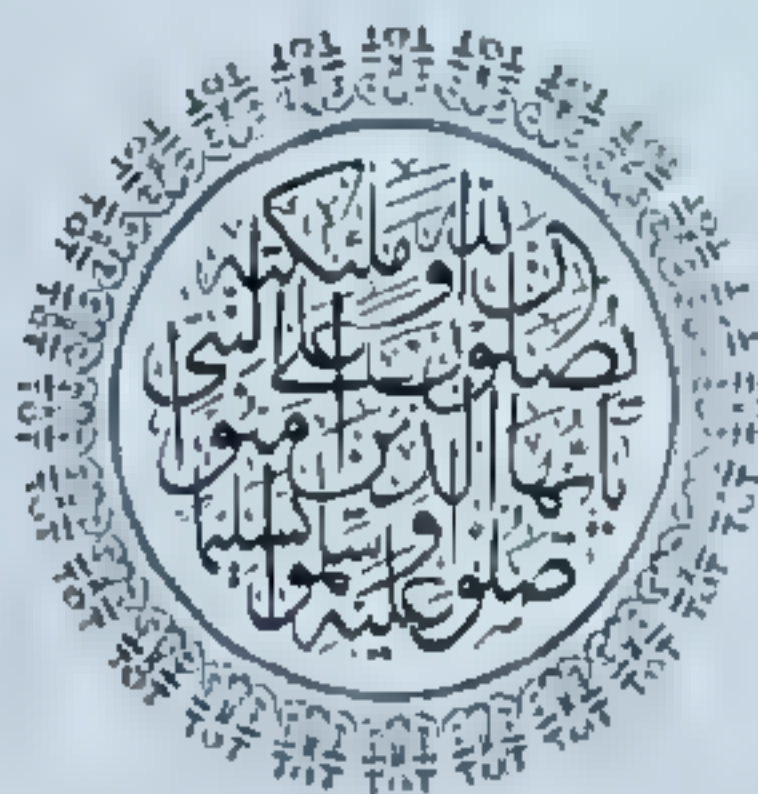 إن الله وملئكته
يصلون على النبي
يأيها الذين ءمنوا
صلوا عليه وسلموا تسليما